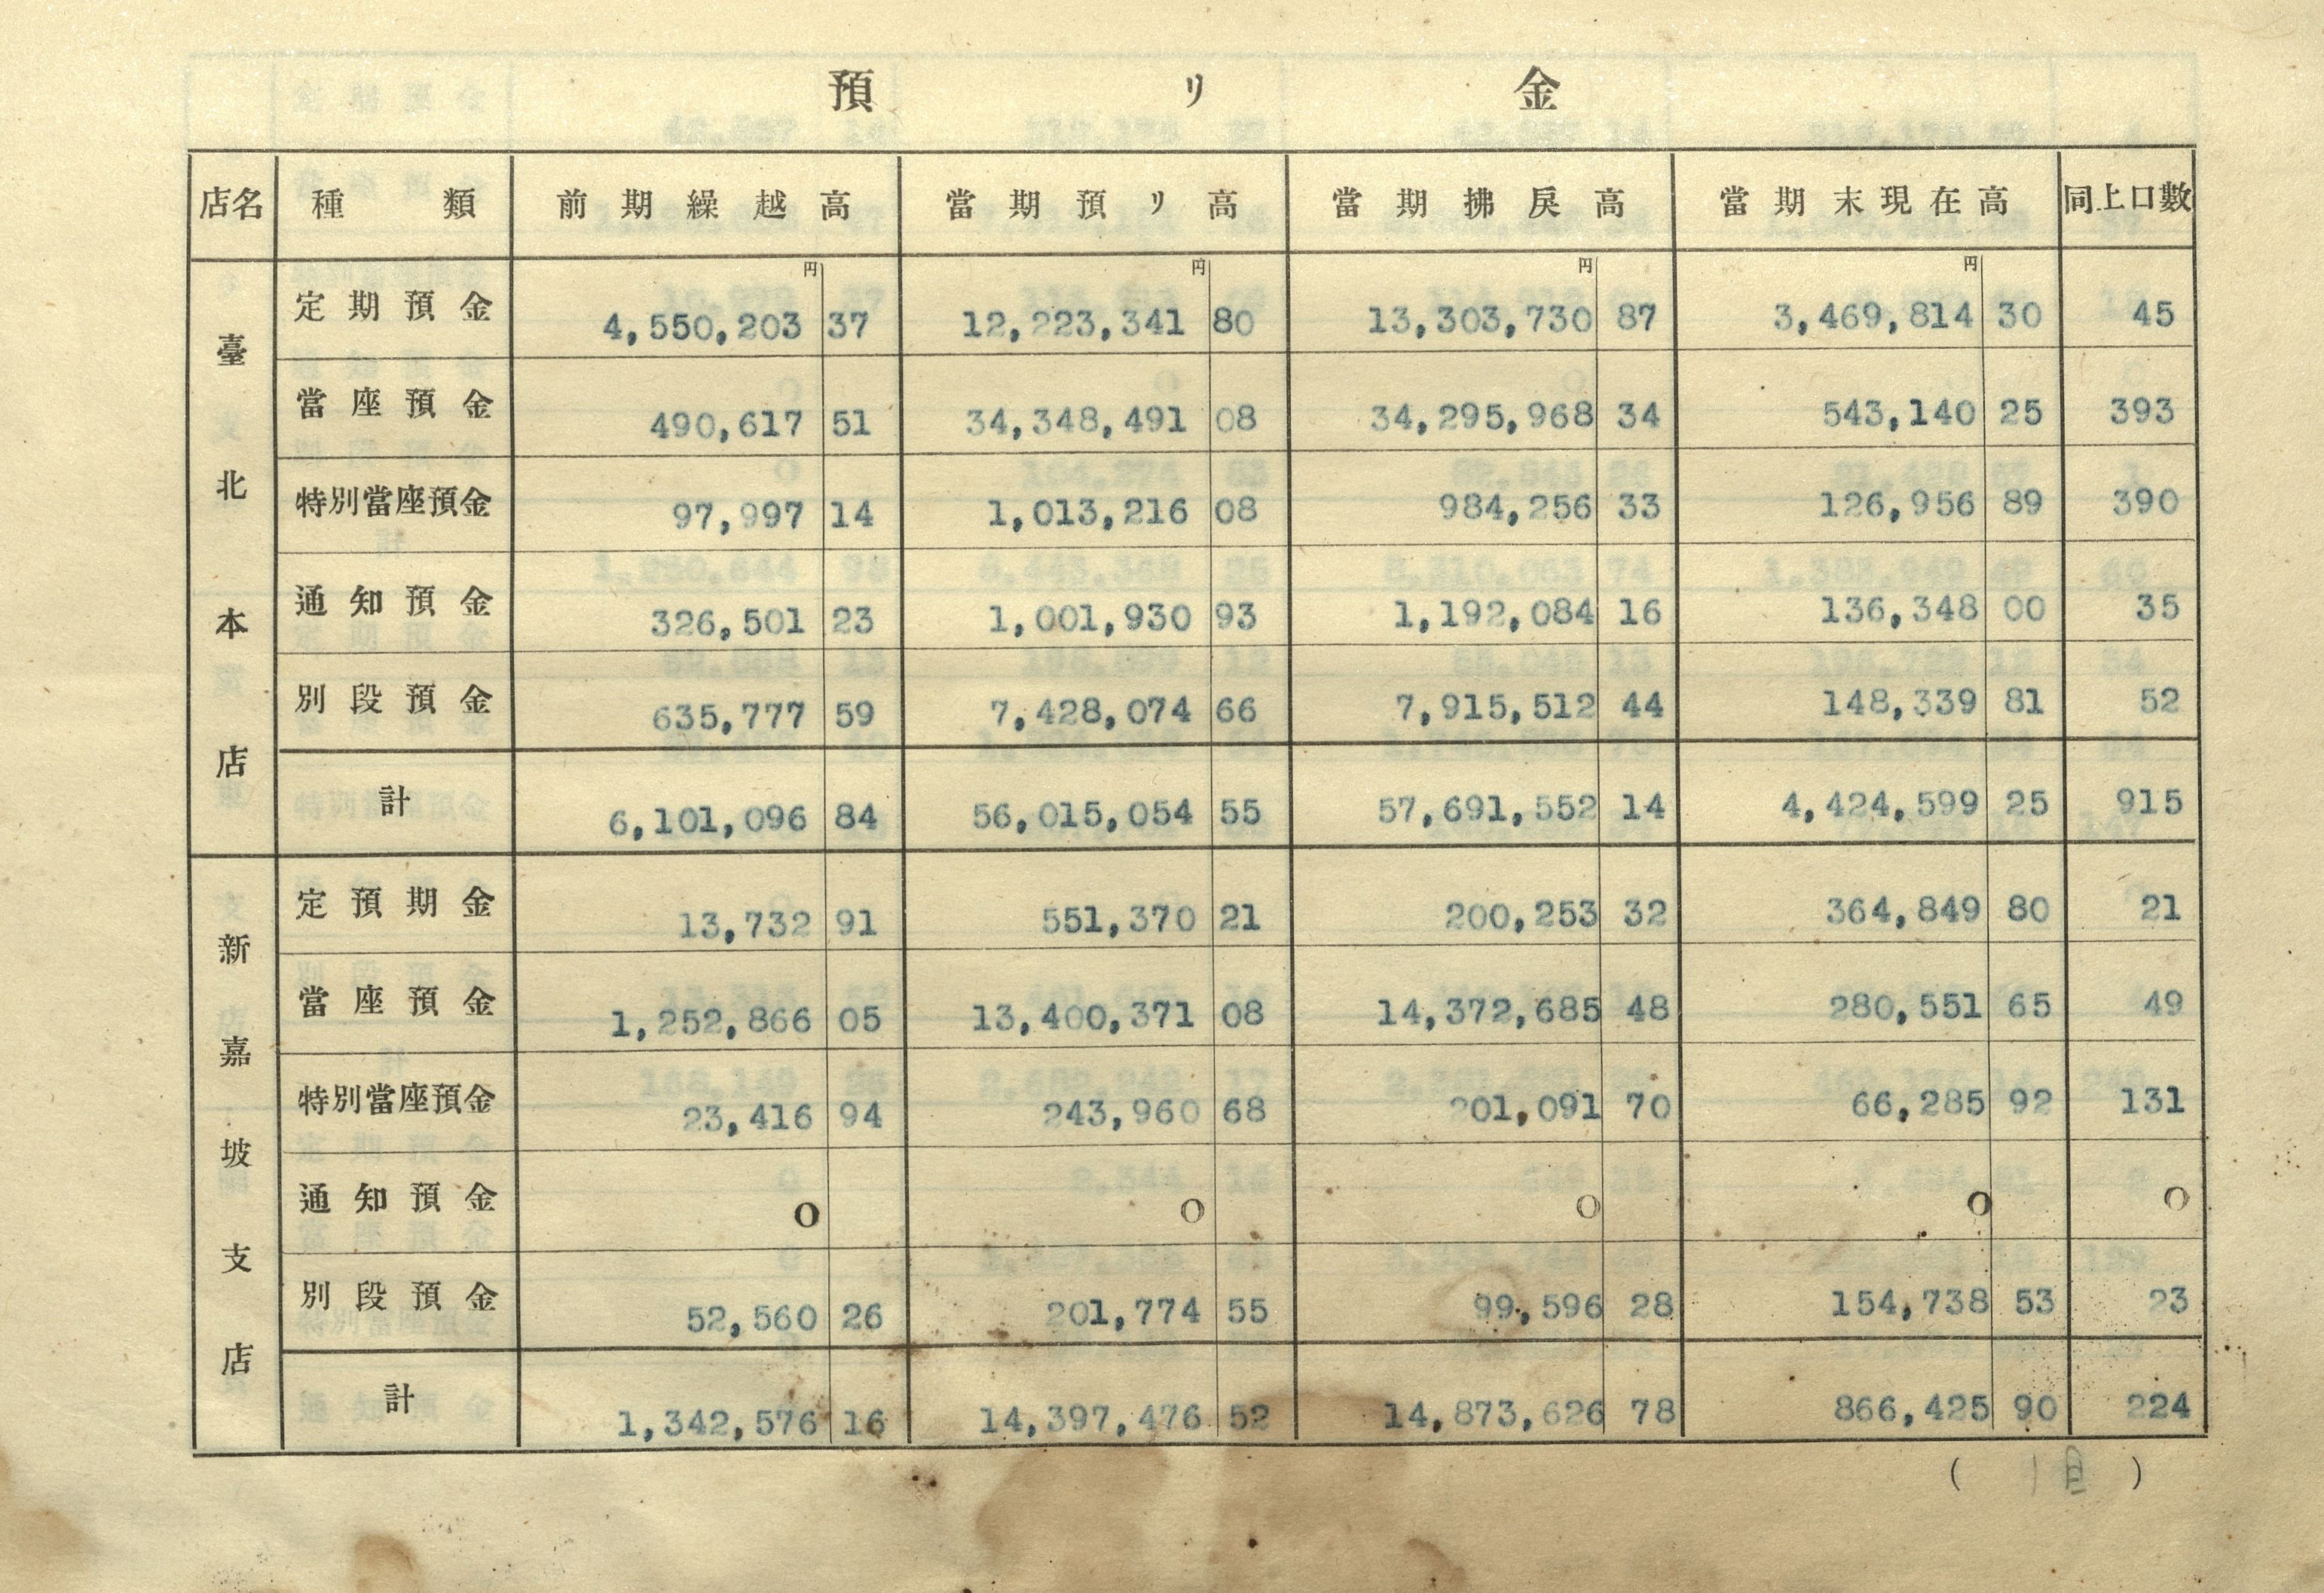 預リ金
店名 種類 前期繰越高 當期預リ高 當期拂戻高 當期末現在高 同上口數
円 円 円 円
臺北本店
定期預金 4,550,203 37 12,223,341 80 13,303,730 87 3,469,814 30 45
當座預金 490,617 51 34,348,491 08 34,295,968 34 543,140 25 393
特別當座預金 97,997 14 1,013,216 08 984,256 33 126,956 89 390
通知預金 326,501 23 1,001,930 93 1,192,084 16 136,348 00 35
別段預金 635,777 59 7,428,074 66 7,915,512 44 148,339 81 52
計 6,101,096 84 56,015,054 55 57,691,552 14 4,424,599 25 915
新嘉坡支店
定預期金 13,732 91 551,370 21 200,253 32 364,849 80 21
當座預金 1,252,866 05 13,400,371 08 14,372,685 48 280,551 65 49
特別當座預金 23,416 94 243,960 68 201,091 70 66,285 92 131
通知預金 0 0 0 0 0
別段預金 52,560 26 201,774 55 99,596 28 154,738 53 23
計 1,342,576 16 14,397,476 52 14,873,626 78 866,425 90 224